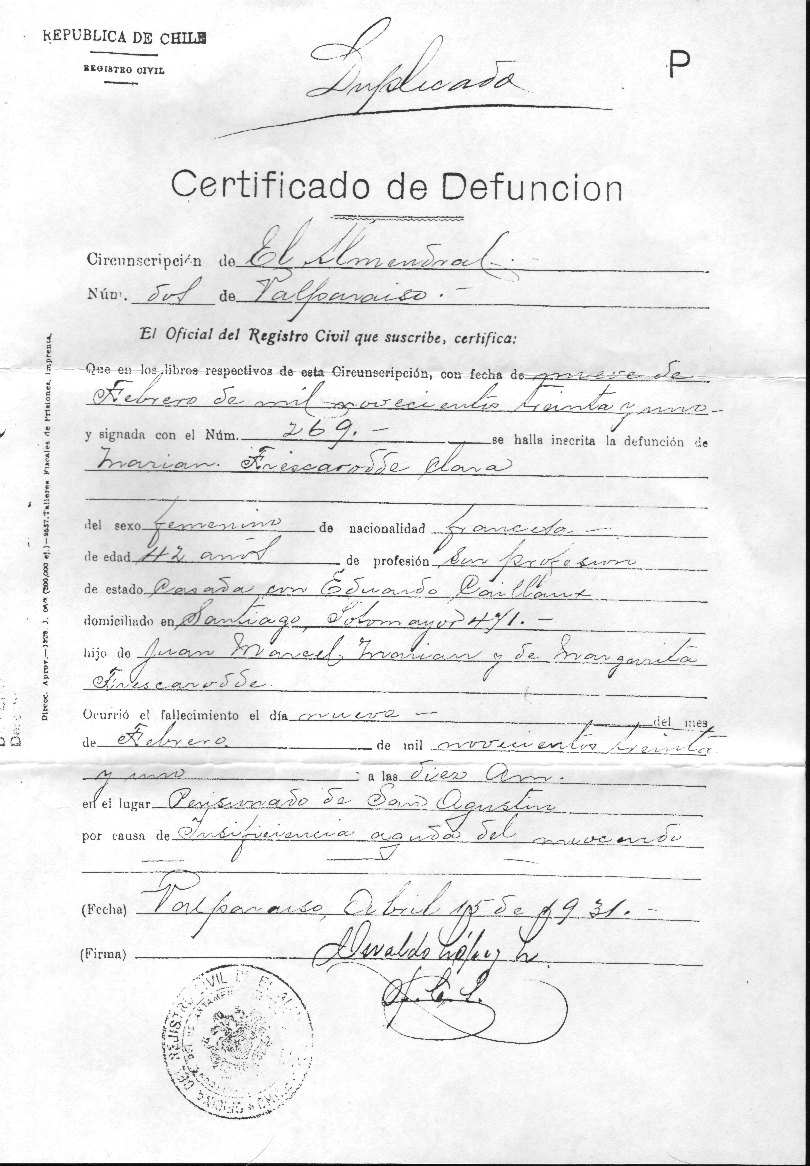 REPUBLICA DE CHILE
REGISTRO CIVIL
Duplicado
P
Certificado de Defuncion
Circunscripción de El Almendral.-
Núm. dos de Valparaiso.-
El Oficial del Registro Civil que suscribe, certifica:
Que en los libros respectivos de esta Circunscripción, con fecha de nueve de
Febrero de mil novecientos treinta y uno-
y signada con el Núm. 269.- se halla inscrita la defunción de
Marian Frescarodde Clara
del sexo femenino de nacionalidad francesa-
de edad 42 años de profesión sin profesion
de estado Casada con Eduardo Caillaux
domiciliado en Santiago, Sotomayor 471.-
hijo de Juan Marcel Marian y de Margarita
Frescarodde.
Ocurrió el fallecimiento el día nueve - del mes
de Febrero de mil novecientos treinta
y uno a las diez Am.
en el lugar Pensionado de San Agustin
por causa de Insificiencia aguda del miocardio
(Fecha) Valparaiso, Abril 15 de 1931.-
(Firma) Osvaldo López
Direc. Aprov.—1928 (200,000 ej.)—2537.Talleres Fiscales de Prisiones, Imprenta.